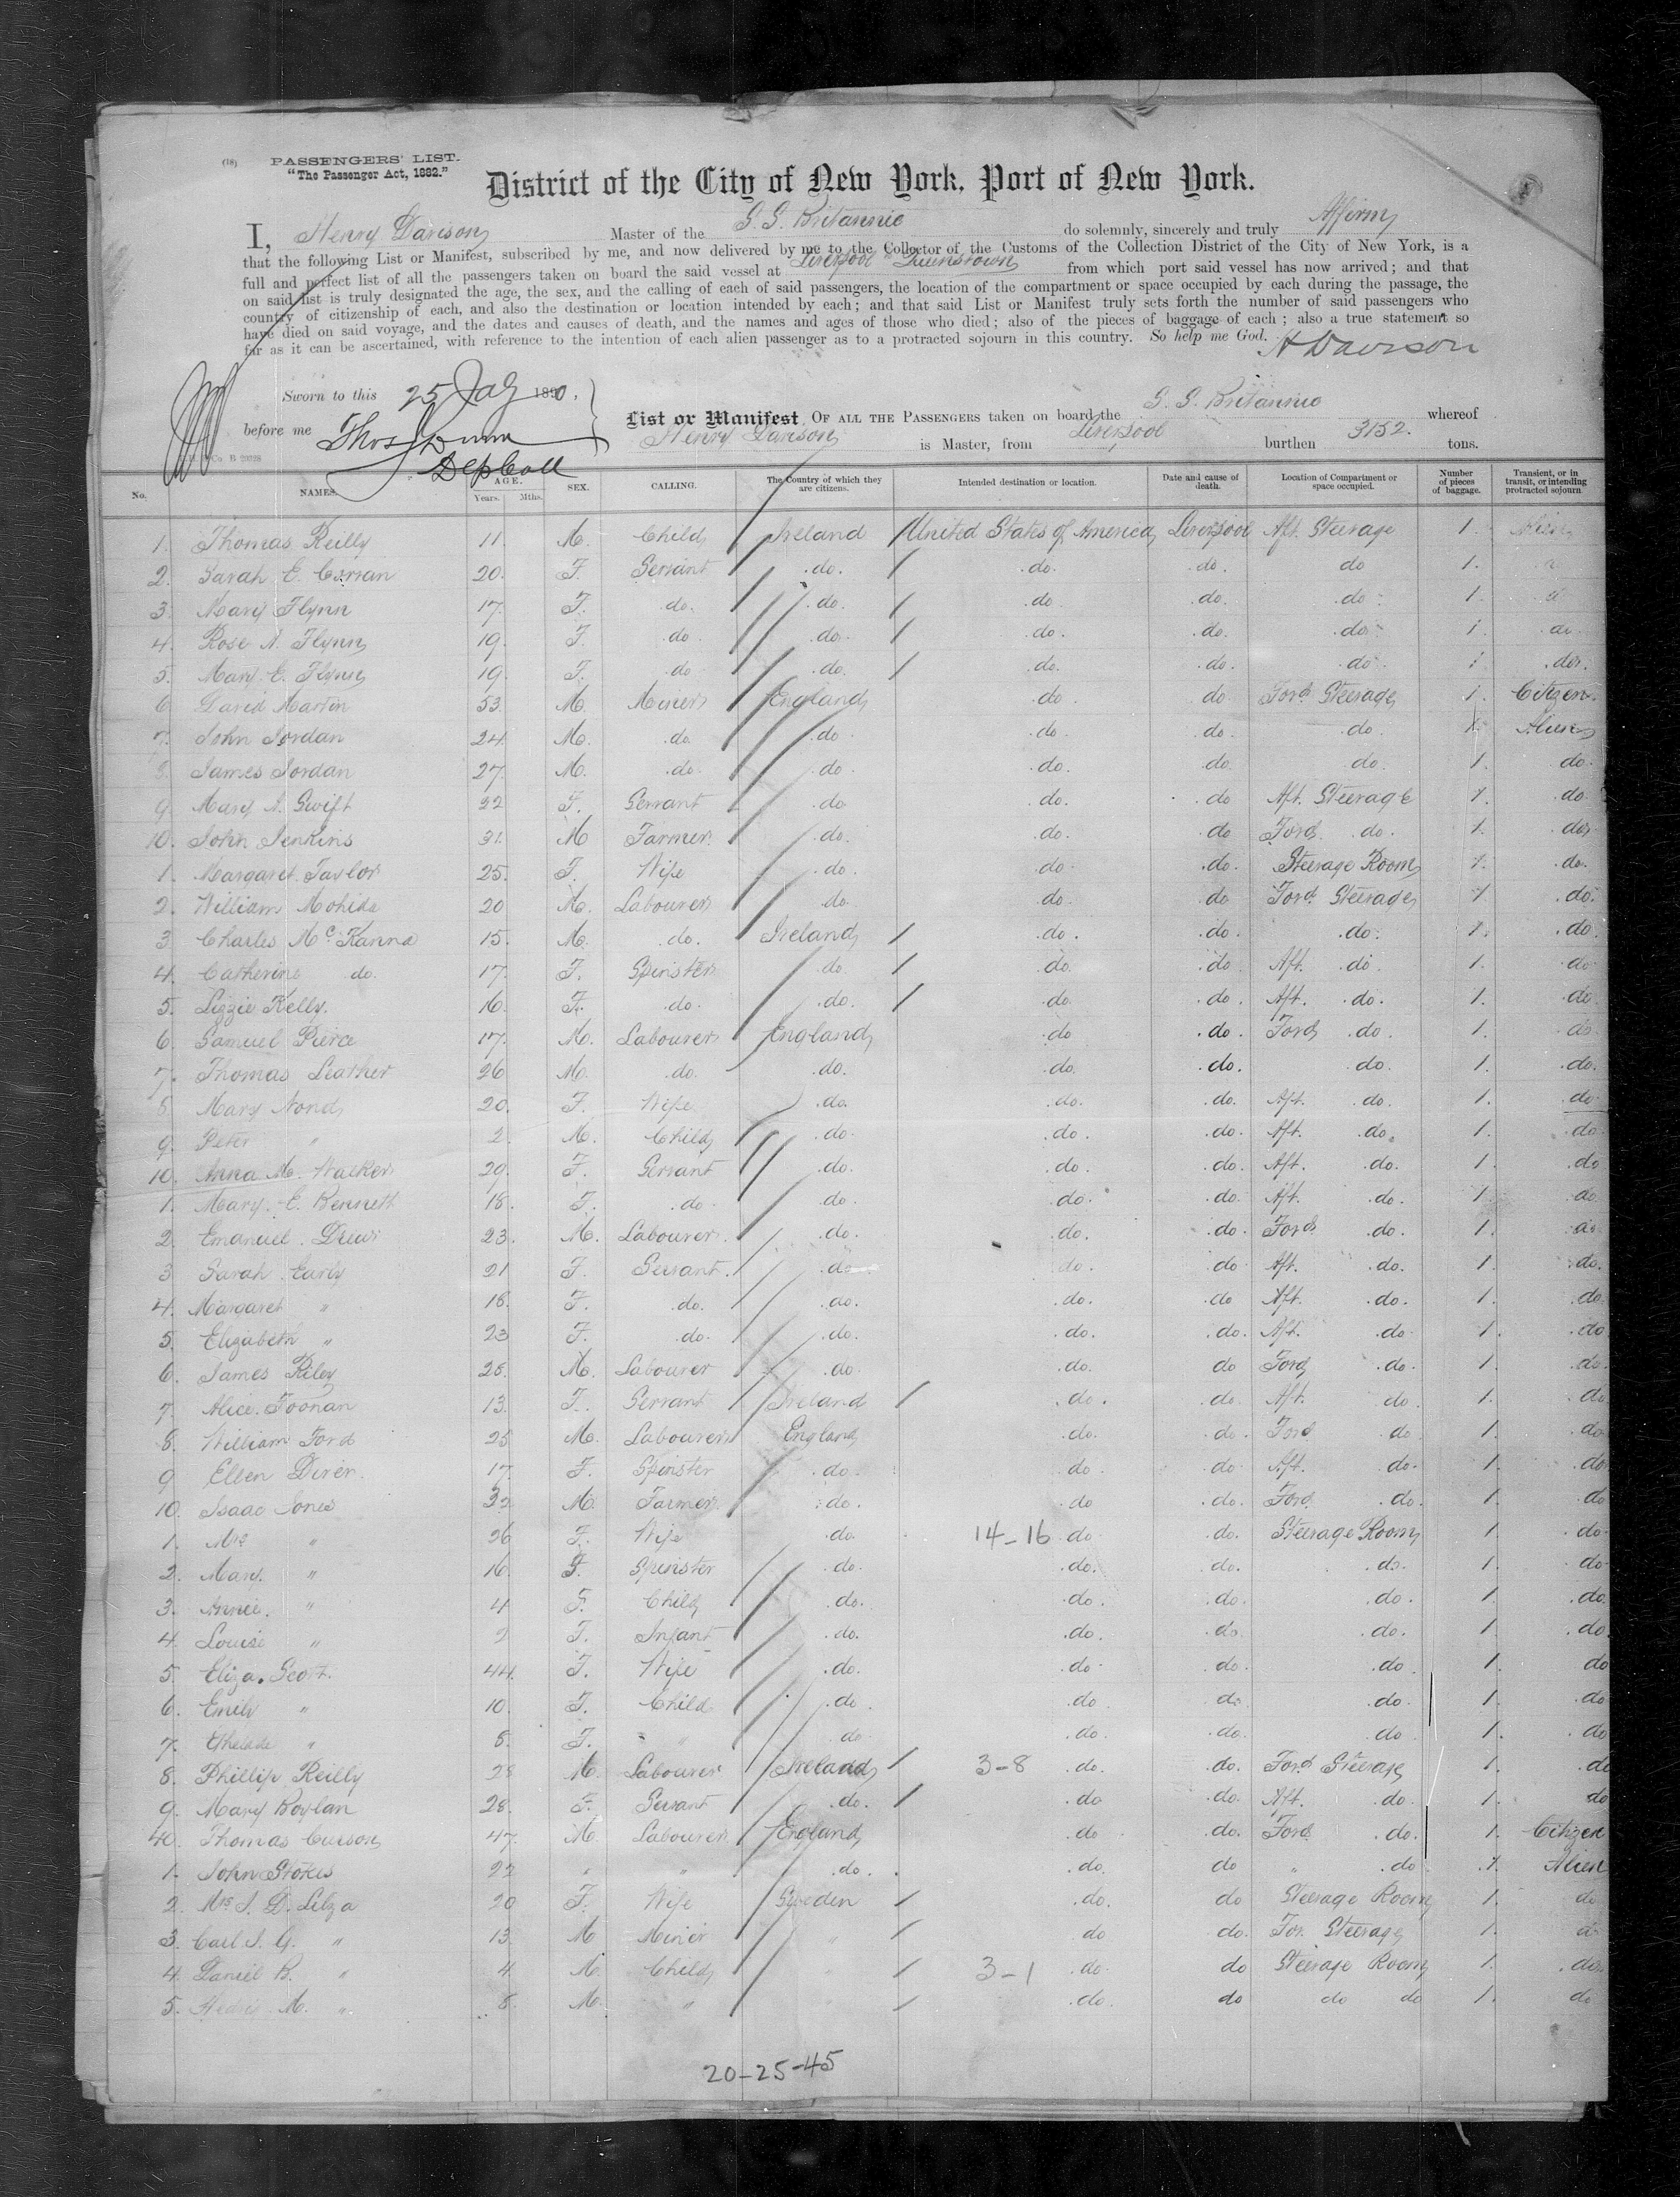 (18) PASSENGERS' LIST.
"The Passenger Act, 1882."
District of the City of New York, Port of New York.
I, Henry Davison Master of the S. S. Britannic do solemnly, sincerely and truly Affirm
that the following List or Manifest, subscribed by me, and now delivered by me to the Collector of the Customs of the Collection District of the City of New York, is a
full and perfect list of all the passengers taken on board the said vessel at Liverpool & Queenstown from which port said vessel has now arrived; and that
on said list is truly designated the age, the sex, and the calling of each of said passengers, the location of the compartment or space occupied by each during the passage, the
country of citizenship of each, and also the destination or location intended by each; and that said List or Manifest truly sets forth the number of said passengers who
have died on said voyage, and the dates and causes of death, and the names and ages of those who died; also of the pieces of baggage of each; also a true statement so
far as it can be ascertained, with reference to the intention of each alien passenger as to a protracted sojourn in this country. So help me God.
H Davison
Sworn to this 25 1890.
before me Thos Dunn
Dep Coll
List or Manifest OF ALL THE PASSENGERS taken on board the S. S. Britannic whereof
Henry Davison is Master, from Liverpool burthen 3152 tons.
No. NAMES. AGE. Years. Mths. SEX. CALLING. The Country of which they are citizens. Intended destination or location. Date and cause of death. Location of Compartment or space occupied. Number of pieces of baggage. Transient, or in transit, or intending protracted sojourn
1. Thomas Reilly 11. M. Child Ireland United States of America Liverpool Aft. Steerage 1. Alien
2. Sarah E. Curran 20. F. Servant do. do. do. do 1.
3. Mary Flynn 17. F. do. do. do do. do 1.
4. Rose A. Flynn 19. F. do. do. do. do. do 1. do
5. Mary E. Flynn 19. F. do do. do. do. do 1 do.
6 David Martin 53. M. Miner England do do Ford Steerage 1. Citizen
7. John Jordan 24. M. do. do do. do. do. 1. Alien
8. James Jordan 27. M. do. do. do. do. do. 1. do.
9. Mary A. Swift 22 F. Servant do. do. do Aft. Steerage 1. do
10. John Jenkins 31. M Farmer. do. do. do Ford. do. 1. do
1. Margaret Taylor 25. F. Wife do. do. do. Steerage Room 1. do.
2. William 20 M. Labourer do. do. do Ford Steerage 1. do.
3 Charles McKanna 15. M. do. Ireland do. do. do. 1. do.
4. Catherine do. 17. F. Spinster do do. do Aft. do. 1. do
5. Lizzie Kelly. 16. F. do. do. do. do. Aft. do. 1. do.
6. Samuel Pierce 17. M. Labourer England do do. Ford do. 1. do
7. Thomas Leather 26 M. do. do. do. do. do. 1. do.
8. Mary Nond 20. F. Wife do. do. do. Aft. do. 1. do
9. Peter " 2. M. Child do. do. do. Aft. do. 1. do
10. Anna M. Walker 29. F. Servant do. do. do. Aft. do. 1. do
1. Mary. E. Bennett 18. F. do. do. do. do. Aft. do. 1. do
2. Emanuel Drew 23. M. Labourer. do. do. do. Ford do. 1. do
3 Sarah Early 21 F. Servant. do do. do Aft. do. 1. do.
4. Margaret " 18. F. do. do. do. do Aft. do. 1. do
5. Elizabeth " 23 F. do. do. do. do. Aft. do 1. do
6. James Riley 28. M. Labourer do. do. do Ford do. 1. do.
7. Alice Foonan 13. F. Servant Ireland do. do. Aft. do. 1. do
8. William Ford 25 M. Labourer England do. do. Ford do 1. do
9 Ellen Diver. 17. F. Spinster do. do do. Aft. do. 1. do
10. Isaac Jones 32 M. Farmer. do. do do. Ford. do. 1. do
1. Mrs " 26 F. Wife do. 14-16 do do. Steerage Room 1. do
2. Mary. " 16. F. Spinster do. do. do. do. 1. do
3. Annie. " 4 F. Child do. do. do. do. 1. do.
4. Louise " 2 F. Infant do. do. do. do. 1. do.
5. Eliza. Scott. 44. F. Wife do. do do. do 1. do
6. Emily " 10. F. Child do. do do. do. 1. do
7. " 8. F. " do do. do. do 1. do
8. Phillip Reilly 28 M. Labourer Ireland 3-8 do. do. Ford Steerage 1. do
9. Mary Boylan 28. F. Servant do. do do. Aft. do. 1. do
40. Thomas Curson 47. M. Labourer England do do. Ford do. 1. Citizen
1. John Stokes 22 " " do. do. do " do 1. Alien
2. Mrs J. D. Lilza 20 F. Wife Sweden do. do Steerage Room 1. do
3. Carl J. G. " 13. M Miner " do do. For. Steerage 1. do
4. Daniel B. " 4. M. Child " 3-1 do. do Steerage Room 1. do.
5. M. " 8. M. " " do. do do do 1. do
20-25-45